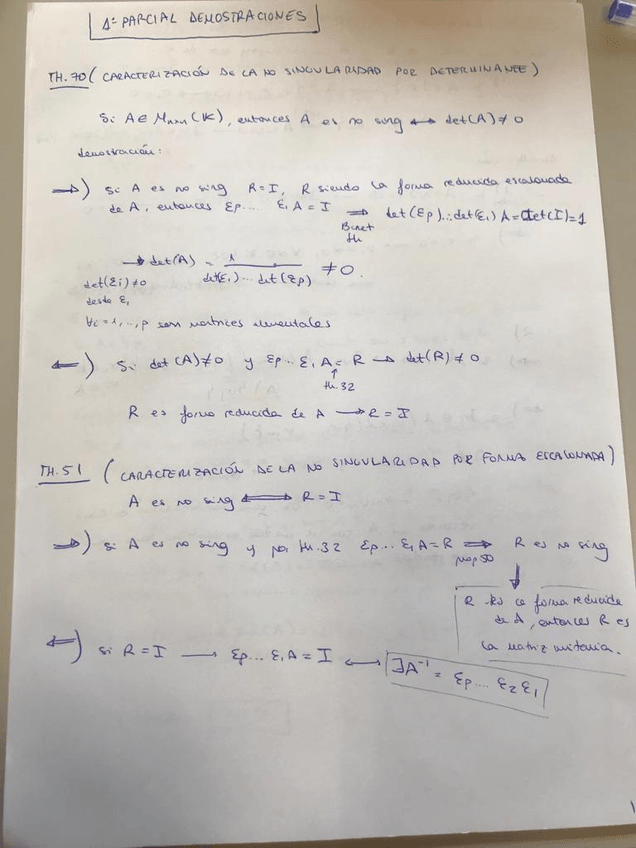 1º PARCIAL DEMOSTRACIONES
TH.70 ( CARACTERIZACIÓN DE LA NO SINGULARIDAD POR DETERMINANTE )
Si A ∈ Mnxn (K), entonces A es no sing ↔ det(A) ≠ 0
demostración:
⇒) Si A es no sing R = I, R siendo la forma reducida escalonada
de A, entonces Ep... E1 A = I ⇒ det(Ep)...det(E1) A = det(I) = 1
Binet
th
→ det(A) = 1 / det(E1)...det(Ep) ≠ 0.
det(Ei) ≠ 0
desde E1
∀i = 1,..., p son matrices elementales
⇐) Si det(A) ≠ 0 y Ep... E1 A = R → det(R) ≠ 0
↑
th.32
R es forma reducida de A → R = I
TH.51 ( CARACTERIZACIÓN DE LA NO SINGULARIDAD POR FORMA ESCALONADA )
A es no sing ⟺ R = I
⇒) si A es no sing y por th.32 Ep... E1 A = R ⇒ R es no sing
prop 50
↓
R es forma reducida
de A, entonces R es
la matriz unitaria.
⇐) si R = I → Ep... E1 A = I ↔ ∃A⁻¹ = Ep... E2 E1
1